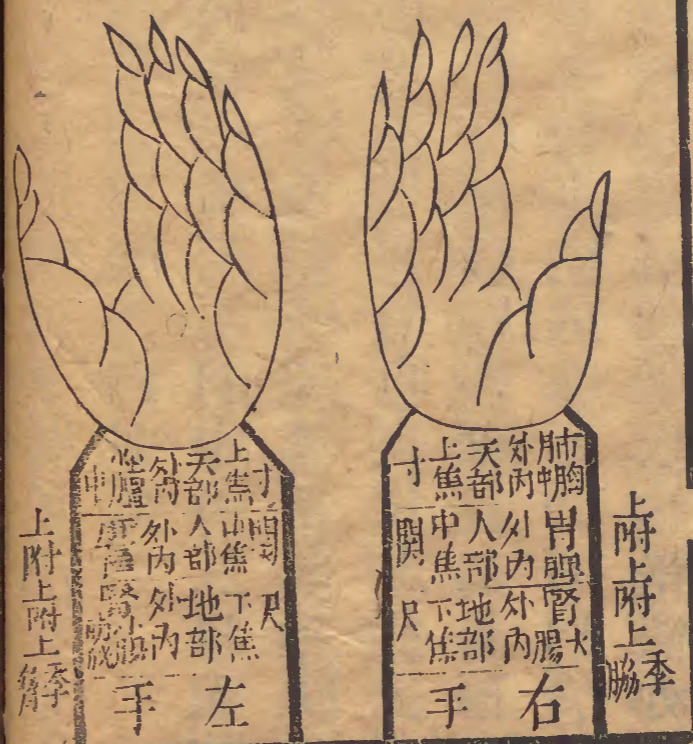 上附上附上季脇
肺胸中胃脾腎大腸
外內外內外內
天部人部地部
上焦中焦下焦
寸關尺
右手
寸關尺
上焦中焦下焦
天部人部地部
外內外內外內
膻中腎小腸
左手
上附上附上季